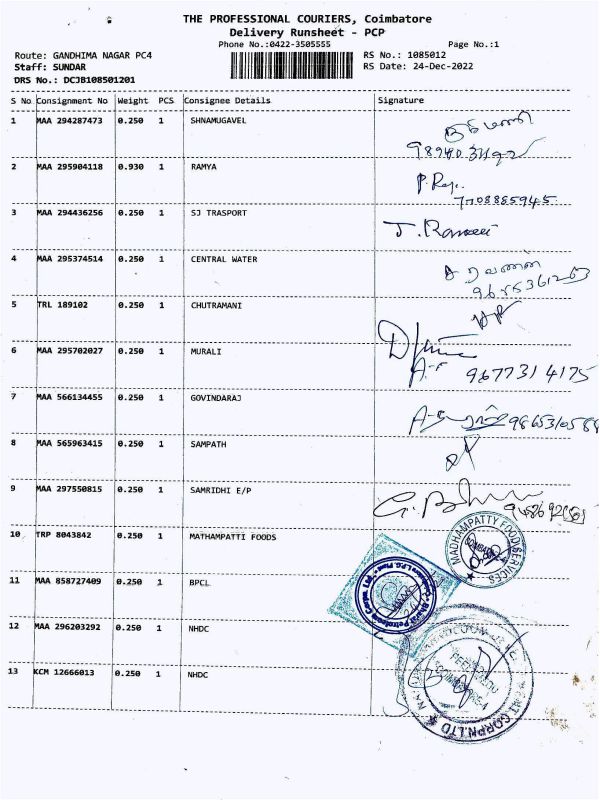 THE PROFESSIONAL COURIERS, Coimbatore
Delivery Runsheet - PCP
Phone No.:0422-3505555 Page No.:1
Route: GANDHIMA NAGAR PC4 RS No.: 1085012
Staff: SUNDAR RS Date: 24-Dec-2022
DRS No.: DCJB108501201
S No Consignment No Weight PCS Consignee Details Signature
1 MAA 294287473 0.250 1 SHNAMUGAVEL
2 MAA 295904118 0.930 1 RAMYA
P. Raj.
7708885945
3 MAA 294436256 0.250 1 SJ TRASPORT
4 MAA 295374514 0.250 1 CENTRAL WATER
5 TRL 189102 0.250 1 CHUTRAMANI
6 MAA 295702027 0.250 1 MURALI
9677314175
7 MAA 566134455 0.250 1 GOVINDARAJ
9865310588
8 MAA 565963415 0.250 1 SAMPATH
9 MAA 297550815 0.250 1 SAMRIDHI E/P
10 TRP 8043842 0.250 1 MATHAMPATTI FOODS
MADHAMPATTY FOOD SERVICES
11 MAA 858727409 0.250 1 BPCL
12 MAA 296203292 0.250 1 NHDC
13 KCM 12666013 0.250 1 NHDC